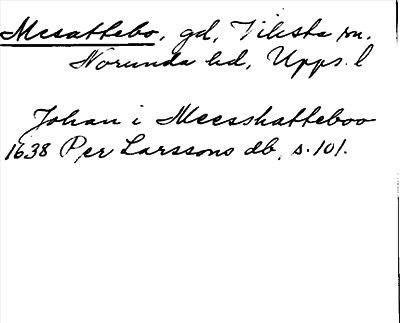 Mesattebo, gd, Viksta sn.
Norunda hd, Upps. l
Johan i Meesshatteboo
1638 Per Larssons db, s. 101.